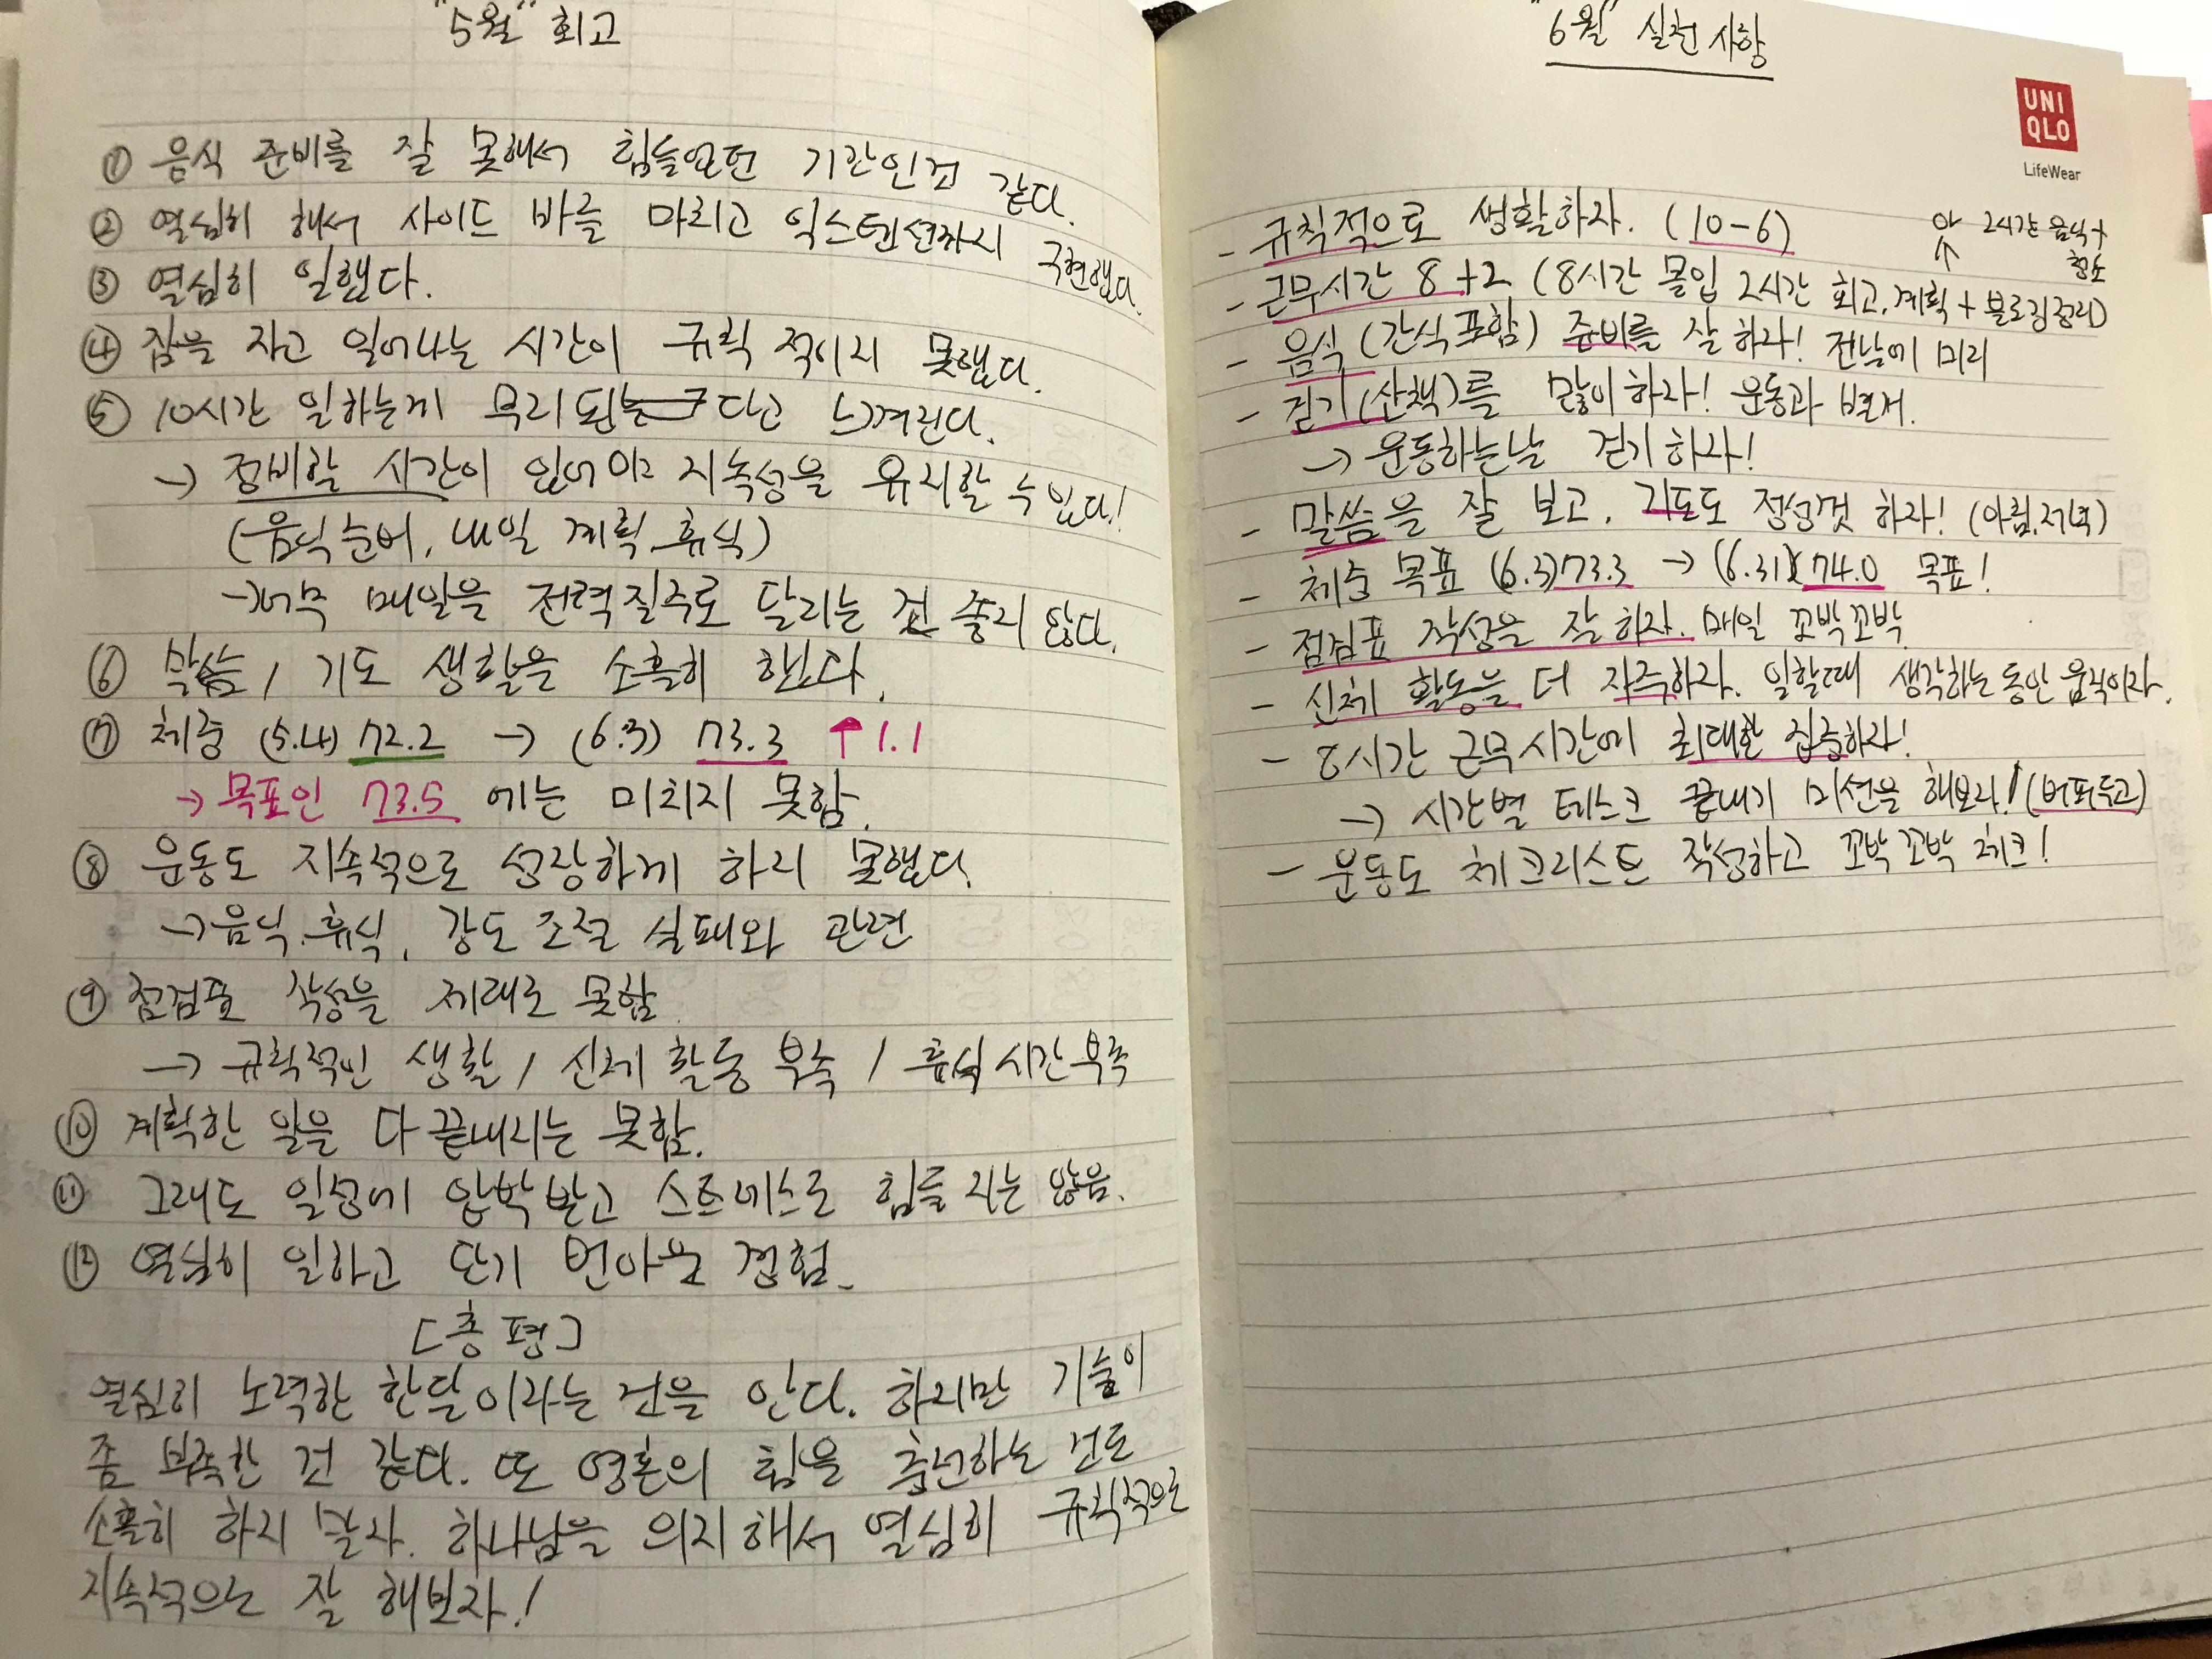 "5월" 회고
① 음식 준비를 잘 못해서 힘들었던 기간인것 같다.
② 열심히 해서 사이드 바를 마치고 익스텐션까지 구현했다.
③ 열심히 일했다.
④ 잠을 자고 일어나는 시간이 규칙적이지 못했다.
⑤ 10시간 일하는게 무리된 다고 느껴진다.
→ 정비할 시간이 있어야 지속성을 유지할 수 있다!
(음식준비, 내일 계획, 휴식)
→ 너무 매일을 전력질주로 달리는 건 좋지 않다.
⑥ 말씀 / 기도 생활을 소홀히 했다.
⑦ 체중 (5.4) 72.2 → (6.3) 73.3 ↑1.1
→ 목표인 73.5 에는 미치지 못함.
⑧ 운동도 지속적으로 성장하게 하지 못했다.
→ 음식, 휴식, 강도 조절 실패와 관련
⑨ 점검표 작성을 제대로 못함
→ 규칙적인 생활 / 신체 활동 부족 / 휴식시간부족
⑩ 계획한 일을 다 끝내지는 못함.
⑪ 그래도 일정에 압박받고 스트레스로 힘들지는 않음.
⑫ 열심히 일하고 단기 번아웃 경험.
[총평]
열심히 노력한 한달이라는 건을 안다. 하지만 기술이
좀 부족한 건 같다. 또 영혼의 힘을 충전하는 건도
소홀히 하지 말자. 하나님을 의지해서 열심히 규칙적으로
지속적으로 잘 해보자!
"6월" 실천사항
UNI
QLO
LifeWear
- 규칙적으로 생활하자. (10-6)
2시간 음식+
청소
- 근무시간 8+2 (8시간 몰입 2시간 회고,계획 + 블로깅정리)
- 음식(간식포함) 준비를 잘 하자! 전날에 미리
- 걷기(산책)를 많이하자! 운동과 별개.
→ 운동하는날 걷기하자!
- 말씀을 잘 보고, 기도도 정성껏 하자! (아침,저녁)
- 체중 목표 (6.3)73.3 → (6.31)74.0 목표!
- 점검표 작성을 잘하자. 매일 꼬박꼬박
- 신체 활동을 더 자주하자. 일할때 생각하는 동안 움직이자.
- 8시간 근무시간에 최대한 집중하자!
→ 시간별 테스크 끝내기 미션을 해보자! (버퍼두고)
- 운동도 체크리스트 작성하고 꼬박꼬박 체크!